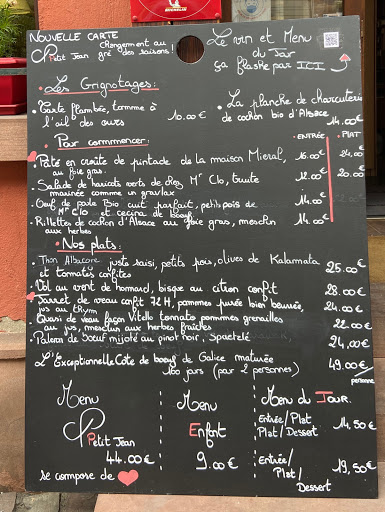 MICHELIN
Nouvelle Carte
Changement au
Ptit Jean gré des saisons!
Le vin et Menu
du Jour
ça flashe par ICI
• Les Grignotages:
• Tarte flambée, tomme à 10.00€
l'ail des ours
• La planche de charcuterie
de cochon bio d'Alsace
14.00€
• Pour commencer:
ENTRÉE • PLAT
• Pâté en croûte de pintade de la maison Mieral, 16.00€ 24.00
au foie gras.
• Salade de haricots verts de chez Mr Clo, truite 12.00€ 20.00
maison comme un gravlax
• Oeuf de poule Bio cuit parfait, petits pois de 14.00€
Mr Clo et cecina de boeuf
• Rillettes de cochon d'Alsace au foie gras, mesclun 14.00€
aux herbes
• Nos plats:
• Thon Albacore juste saisi, petits pois, olives de Kalamata 25.00€
et tomates confites
• Vol au vent de homard, bisque au citron confit 28.00€
• Jarret de veau confit 72H, pommes purée bien beurrée, 24.00€
jus au thym
• Quasi de veau façon Vitello tonnato pommes grenailles 22.00€
au jus, mesclun aux herbes fraîches
• Paleron de boeuf mijoté au pinot noir, Spaetzlé 24,00€
L'Exceptionnelle Côte de boeuf de Galice maturée 49.00€
100 jours (pour 2 personnes) /personne
Menu
Ptit Jean
44.00€
se compose de
Menu
Enfant
9.00€
Menu du Jour
Entrée/Plat
Plat/Dessert 14,50€
Entrée/
Plat/ 19,50€
Dessert